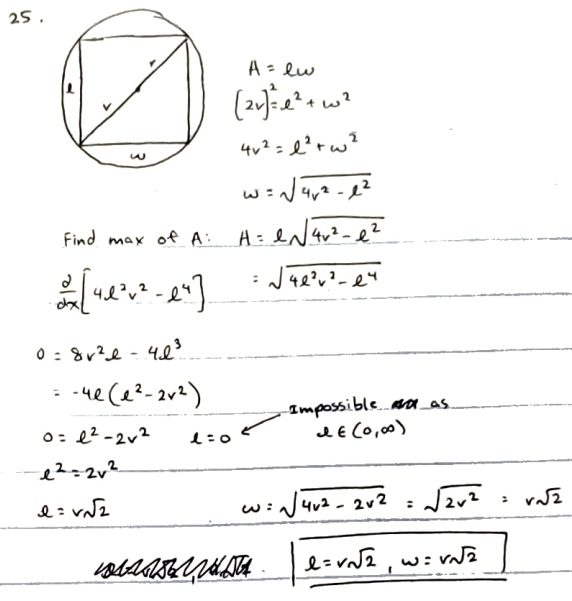 25.
r
l
r
w
A = lw
(2r)² = l² + w²
4r² = l² + w²
w = √(4r² - l²)
Find max of A: A = l√(4r² - l²)
d/dx [4l²r² - l⁴] = √(4l²r² - l⁴)
0 = 8r²l - 4l³
= -4l(l² - 2r²)
Impossible as
0 = l² - 2r² l = 0 l ∈ (0, ∞)
l² = 2r²
l = r√2 w = √(4r² - 2r²) = √(2r²) = r√2
l = r√2, w = r√2